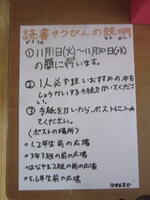 読書ゆうびんの説明
①11月1日(火)〜11月30日(水)
の間に行います。
②1人必ず1まいおすすめの本を
しょうかいする手紙をかいてください。
③手紙をかいたら、ポストに入れ
てください。
(ポストの場所)
・1.2年生前の広場
・3年3組の前の広場
・はなやま2組の前の広場
・5.6年生前の広場